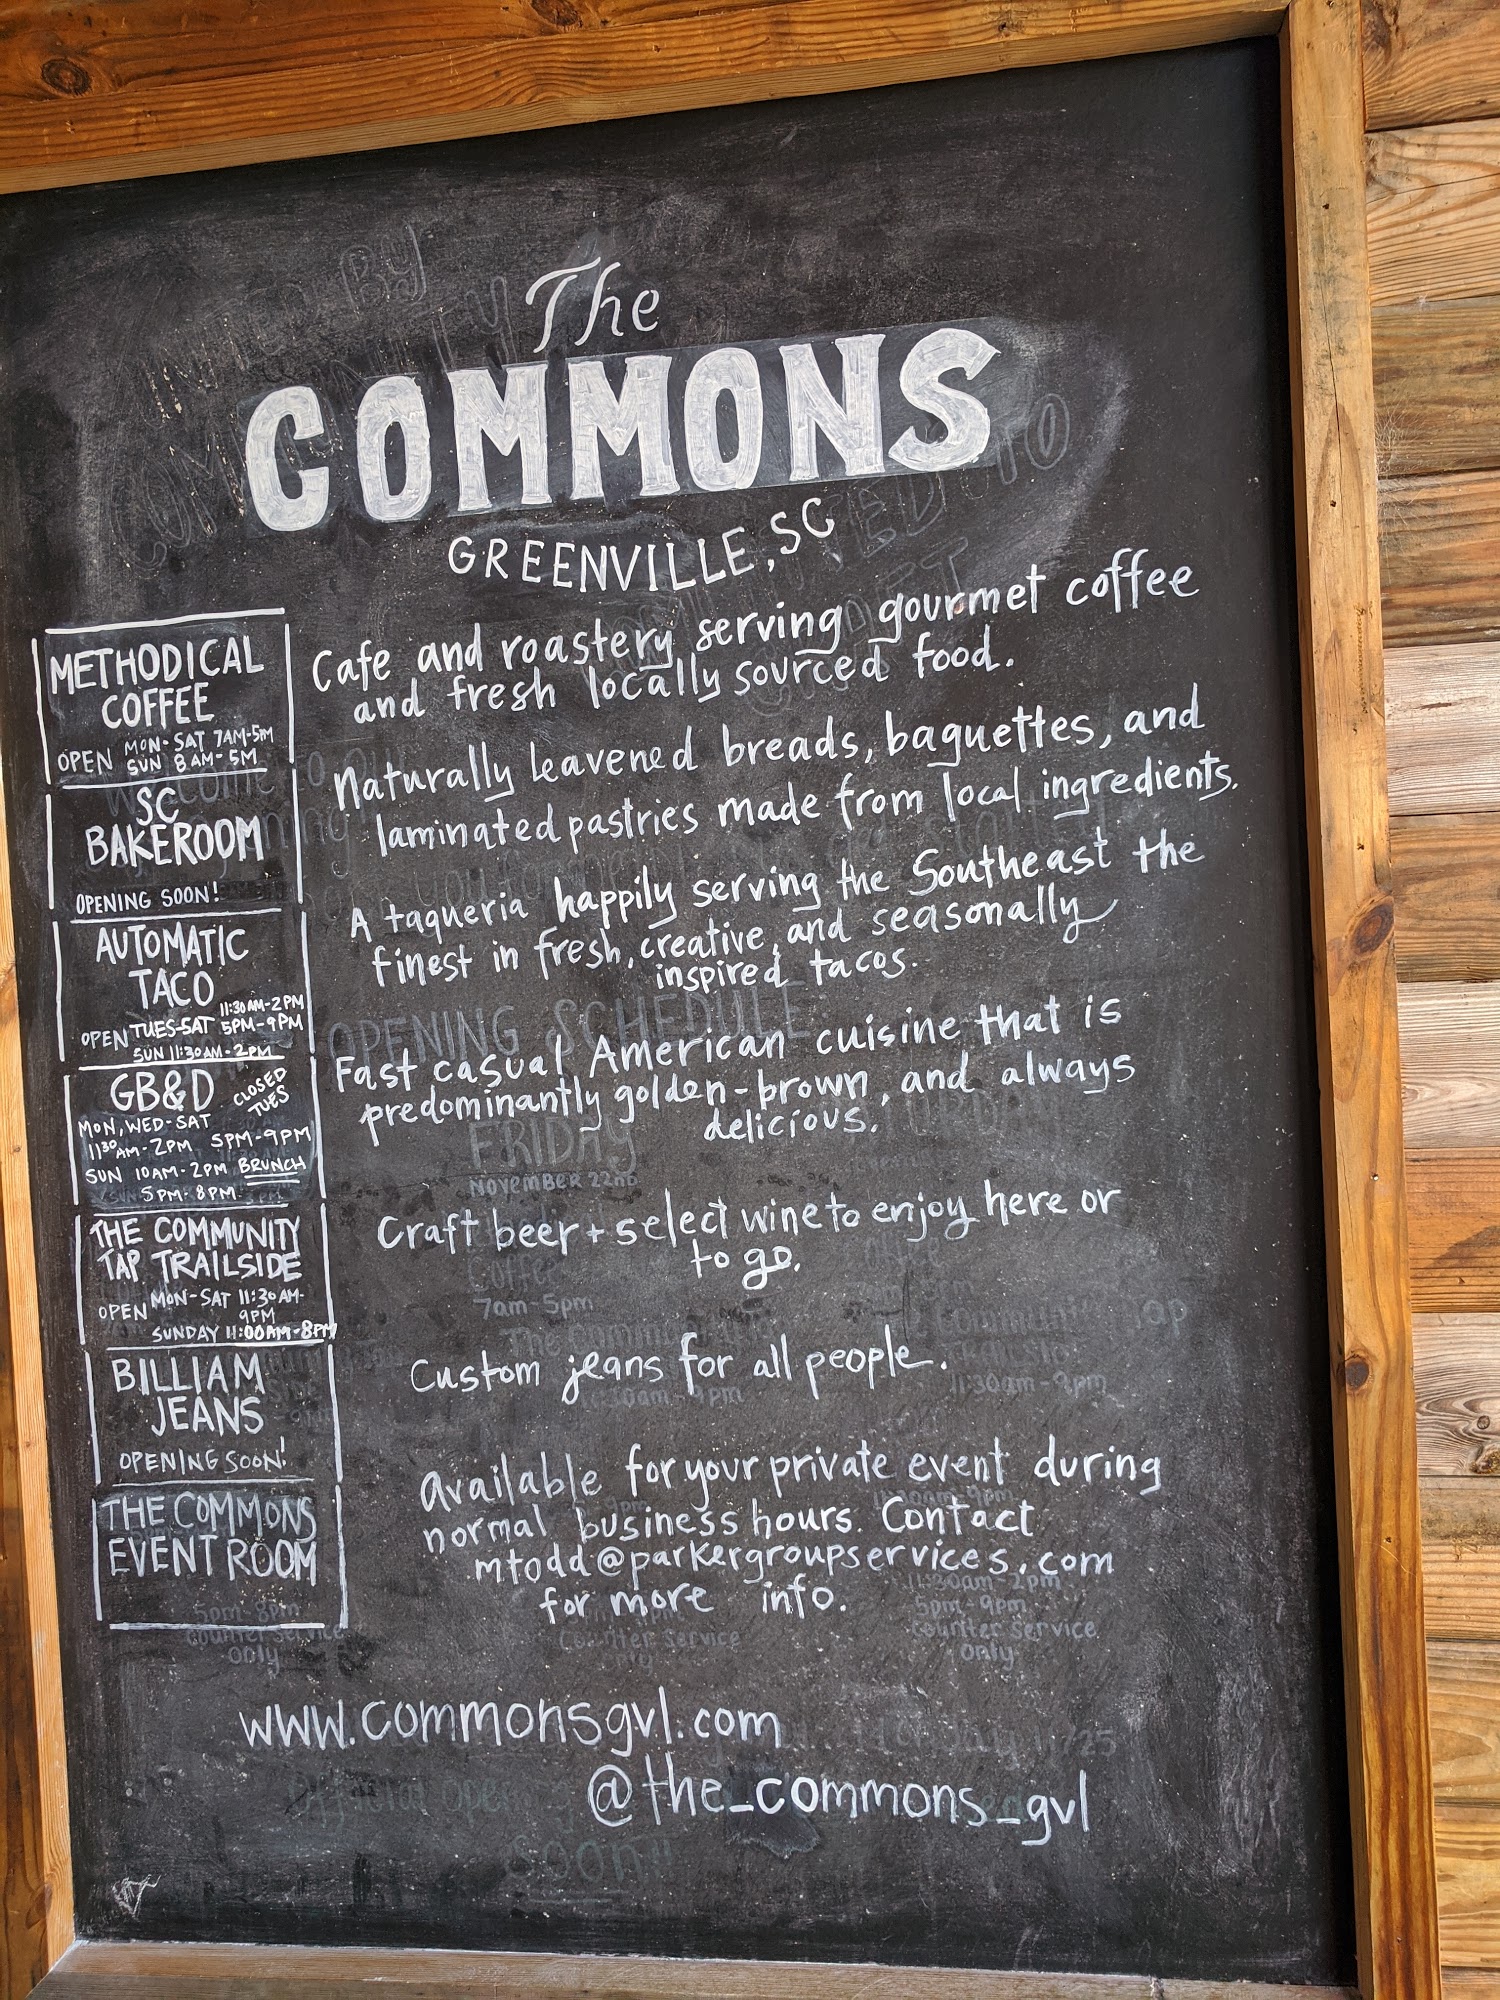 The
COMMONS
GREENVILLE, SC
METHODICAL
COFFEE
OPEN MON-SAT 7AM-5PM
SUN 8AM-5M
Cafe and roastery serving gourmet coffee
and fresh locally sourced food.
SC
BAKEROOM
OPENING SOON!
Naturally leavened breads, baguettes, and
laminated pastries made from local ingredients.
AUTOMATIC
TACO
11:30AM-2PM
OPEN TUES-SAT 5PM-9PM
SUN 11:30AM-2PM
A taqueria happily serving the Southeast the
finest in fresh, creative, and seasonally
inspired tacos.
GB&D CLOSED
TUES
MON, WED-SAT
11:30AM-2PM 5PM-9PM
SUN 10AM-2PM BRUNCH
5PM-8PM
Fast casual American cuisine that is
predominantly golden-brown, and always
delicious.
THE COMMUNITY
TAP TRAILSIDE
OPEN MON-SAT 11:30AM-
9PM
SUNDAY 11:00AM-8PM
Craft beer + select wine to enjoy here or
to go.
BILLIAM
JEANS
OPENING SOON!
Custom jeans for all people.
THE COMMONS
EVENT ROOM
available for your private event during
normal business hours. Contact
mtodd@parkergroupservices.com
for more info.
www.commonsgvl.com
@the_commons_gvl
OPENING SCHEDULE
FRIDAY
November 22nd
Coffee
7am-5pm
11:30am-9pm
11:30am-2pm
5pm-8pm
5pm-9pm
counter service
only
counter service
counter service
only
Soon!!